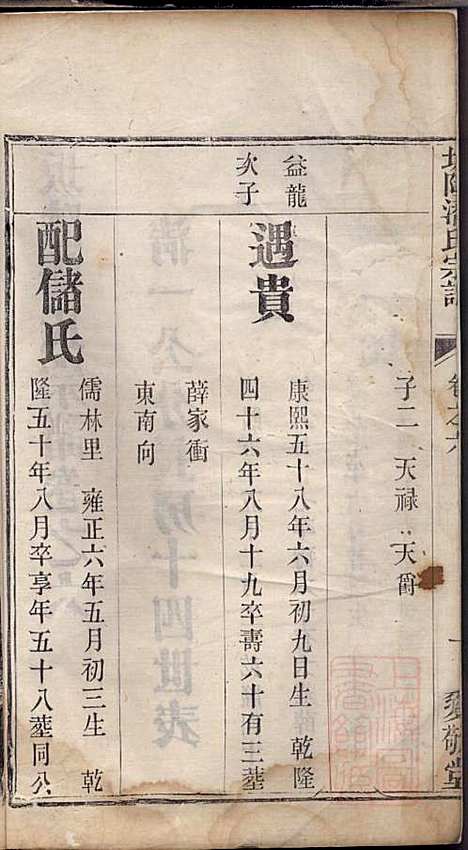 潘氏宗譜
卷之六
一
愛敬堂
子二 天祿 天爵
益龍
次子
遇貴
康熙五十八年六月初九日生 乾隆
四十六年八月十九卒壽六十有三塟
薛家衝
東南向
配儲氏
儒林里 雍正六年五月初三生 乾
隆五十年八月卒享年五十八塟同公